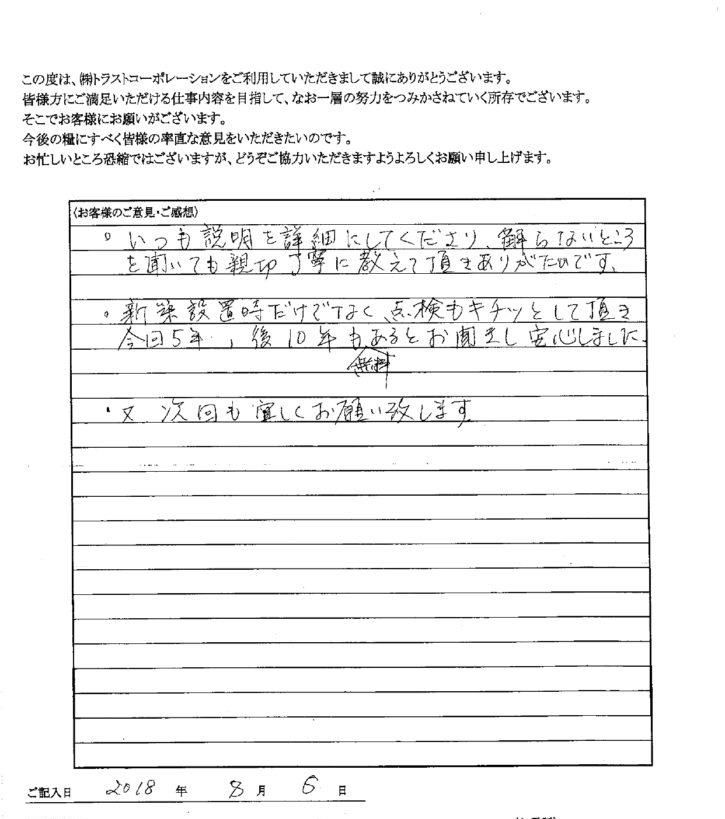 この度は、㈱トラストコーポレーションをご利用していただきまして誠にありがとうございます。
皆様方にご満足いただける仕事内容を目指して、なお一層の努力をつみかさねていく所存でございます。
そこでお客様にお願いがございます。
今後の糧にすべく皆様の率直な意見をいただきたいのです。
お忙しいところ恐縮ではございますが、どうぞご協力いただきますようよろしくお願い申し上げます。
(お客様のご意見・ご感想)
。いつも説明を詳細にしてくださり、解らないところ
を聞いても親切丁寧に教えて頂きありがたいです。
。新築設置時だけでなく、点検もキチッとして頂き
今回5年、後10年もあるとお聞きし安心しました。
無料
・又 次回も宜しくお願い致します。
ご記入日 2018 年 8 月 6 日